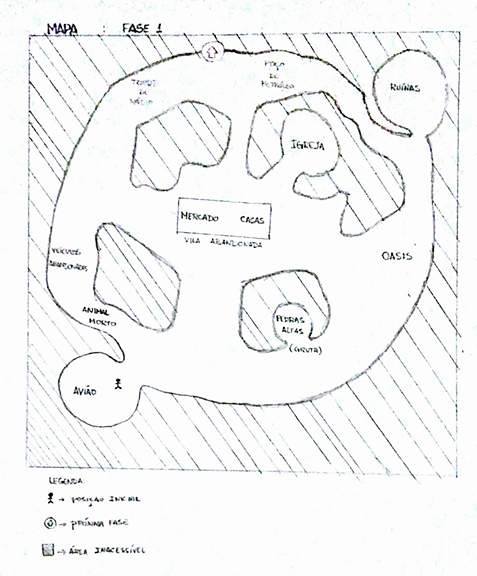 MAPA : FASE 1
POÇO
DE
PETRÓLEO
RUÍNAS
DE
IGREJA
MERCADO CASAS
VILA ABANDONADA
VEÍCULOS
ABANDONADOS
OASIS
ANIMAL
MORTO
PEDRAS
ALTAS
(GRUTA)
AVIÃO
LEGENDA
→ POSIÇÃO INICIAL
→ PRÓXIMA FASE
→ ÁREA INACESSÍVEL